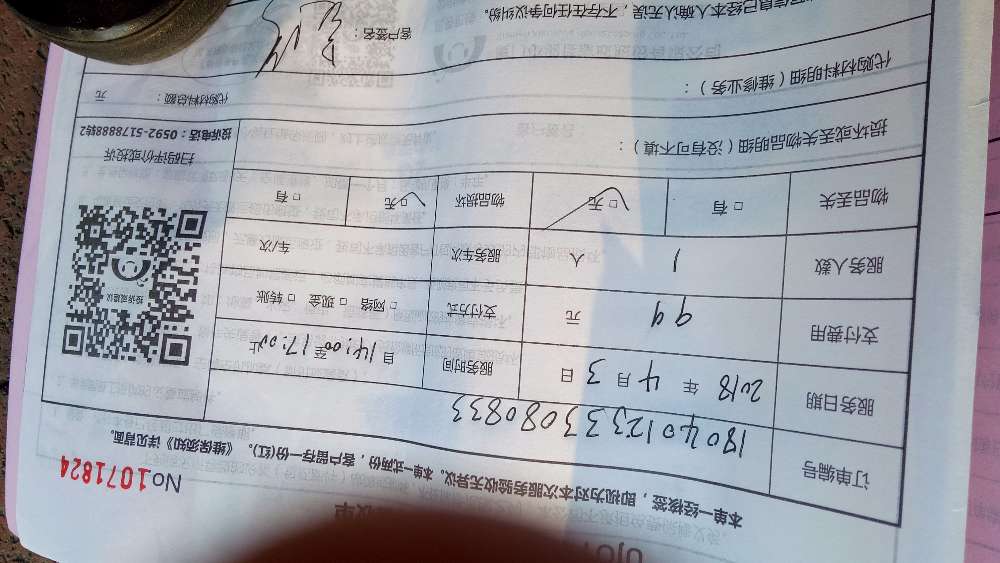 No1071824
本单一经接签，即视为对本次服务验收无异议。本单一式两份，客户留存一份(红)。《维保须知》详见背面。
订单编号 1804012333080833
服务日期 2018 年 4 月 3 日 服务时间 自 14:00 至 17:00 止
支付费用 99 元 支付方式 □ 网络 □ 现金 □ 转账
服务人数 1 人 服务车次 车/次
物品丢失 □ 有 □ 无 物品损坏 □ 无 □ 有
投诉或建议
扫码评价或投诉
投诉电话：0592-5178888转2
损坏或丢失物品明细（没有可不填）：
代购材料明细（维修业务）： 代购材料总额： 元
信息已经本人确认无误，不存在任何争议纠纷。 客户签名：